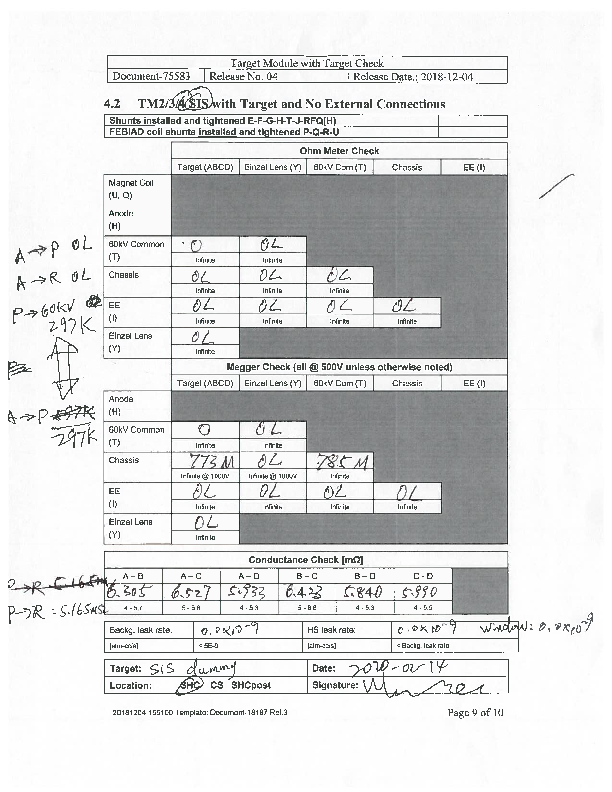 Target Module with Target Check
Document-75583 Release No. 04 Release Date.: 2018-12-04
4.2 TM2/3/4 SIS with Target and No External Connections
Shunts installed and tightened E-F-G-H-T-J-RFQ(H)
FEBIAD coil shunts installed and tightened P-Q-R-U
Ohm Meter Check
Target (ABCD) Einzel Lens (Y) 60kV Com (T) Chassis EE (I)
Magnet Coil
(U, Q)
Anode
(H)
60kV Common O OL
(T) Infinite Infinite
Chassis OL OL OL
Infinite Infinite Infinite
EE OL OL OL OL
(I) Infinite Infinite Infinite Infinite
Einzel Lens OL
(Y) Infinite
A → P OL
A → R OL
P → 60kV
297K
Megger Check (all @ 500V unless otherwise noted)
Target (ABCD) Einzel Lens (Y) 60kV Com (T) Chassis EE (I)
Anode
(H)
A → P 297K
297K
60kV Common O OL
(T) Infinite Infinite
Chassis 773 M OL 785 M
Infinite @ 1000V Infinite @ 1000V Infinite
EE OL OL OL OL
(I) Infinite Infinite Infinite Infinite
Einzel Lens OL
(Y) Infinite
Conductance Check [mΩ]
A – B A – C A – D B – C B – D C - D
6.305 6.527 5.933 6.423 5.840 5.990
4 - 5.7 5 - 6.6 4 - 5.3 5 - 6.6 4 - 5.3 4 - 5.5
P → R = 5.165mΩ
Backg. leak rate: 0.0x10-9 HS leak rate: 0.0x10-9 window: 0.0x10-9
[atm-cc/s] < 5E-9 [atm-cc/s] < Backg. leak rate
Target: SIS dummy Date: 2020-02-14
Location: SHC CS SHCpost Signature:
20181204 155100 Template: Document-18187 Rel.3 Page 9 of 10